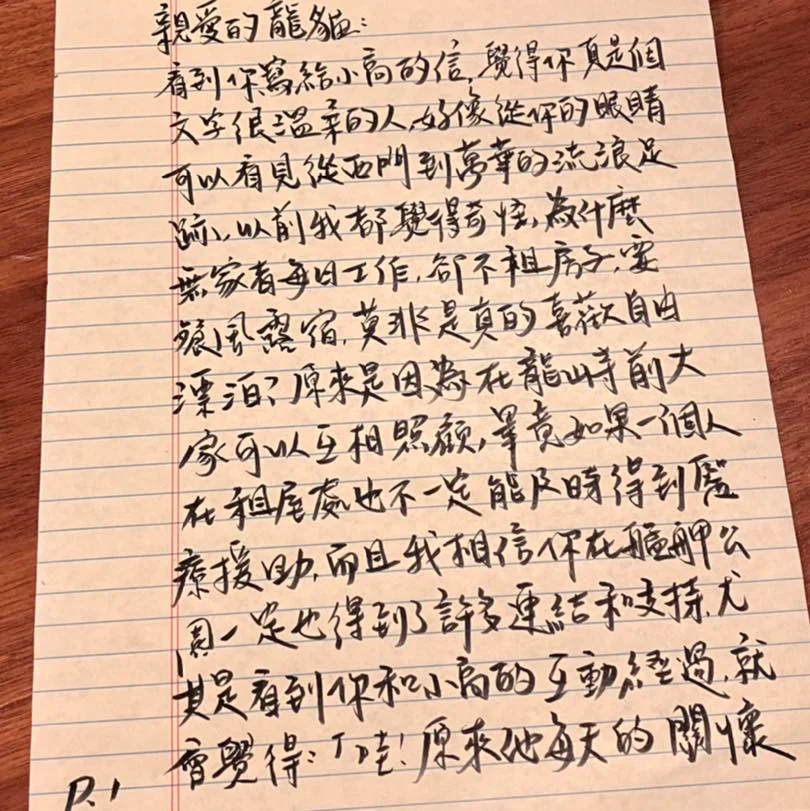 親愛的龍貓：
看到你寫給小高的信，覺得你真是個
文字很溫柔的人，好像從你的眼睛
可以看見從西門到萬華的流浪足
跡、以前我都覺得奇怪，為什麼
無家者每日工作，卻不租房子，要
餐風露宿，莫非是真的喜歡自由
漂泊？原來是因為在龍山寺前大
家可以互相照顧，畢竟如果一個人
在租屋處也不一定能及時得到醫
療援助，而且我相信你在艋舺公
園一定也得到了許多連結和支持，尤
其是看到你和小高的互動經過，就
會覺得：「哇！原來他每天的關懷
P.1